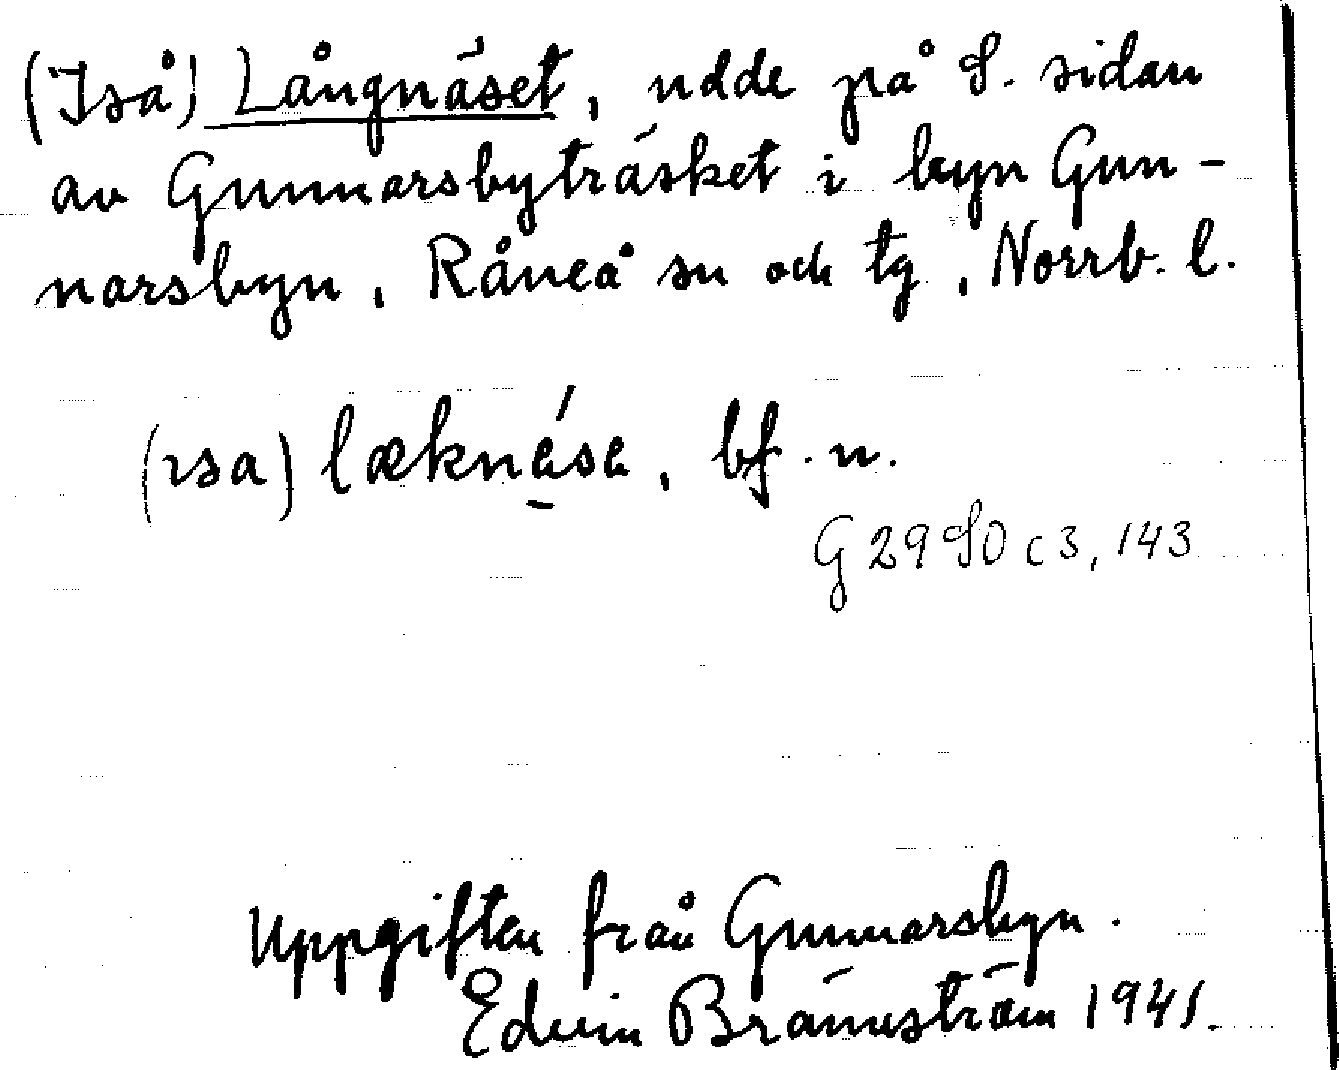 (Iså) Långnäset, udde på S. sidan
av Gunnarsbyträsket i byn Gun-
narsbyn, Råneå sn och tg, Norrb. l.
(ısa) læknése, bf. n.
G 29 S0 c 3, 143
Uppgiften från Gunnarsbyn.
Edvin Brännström 1941.